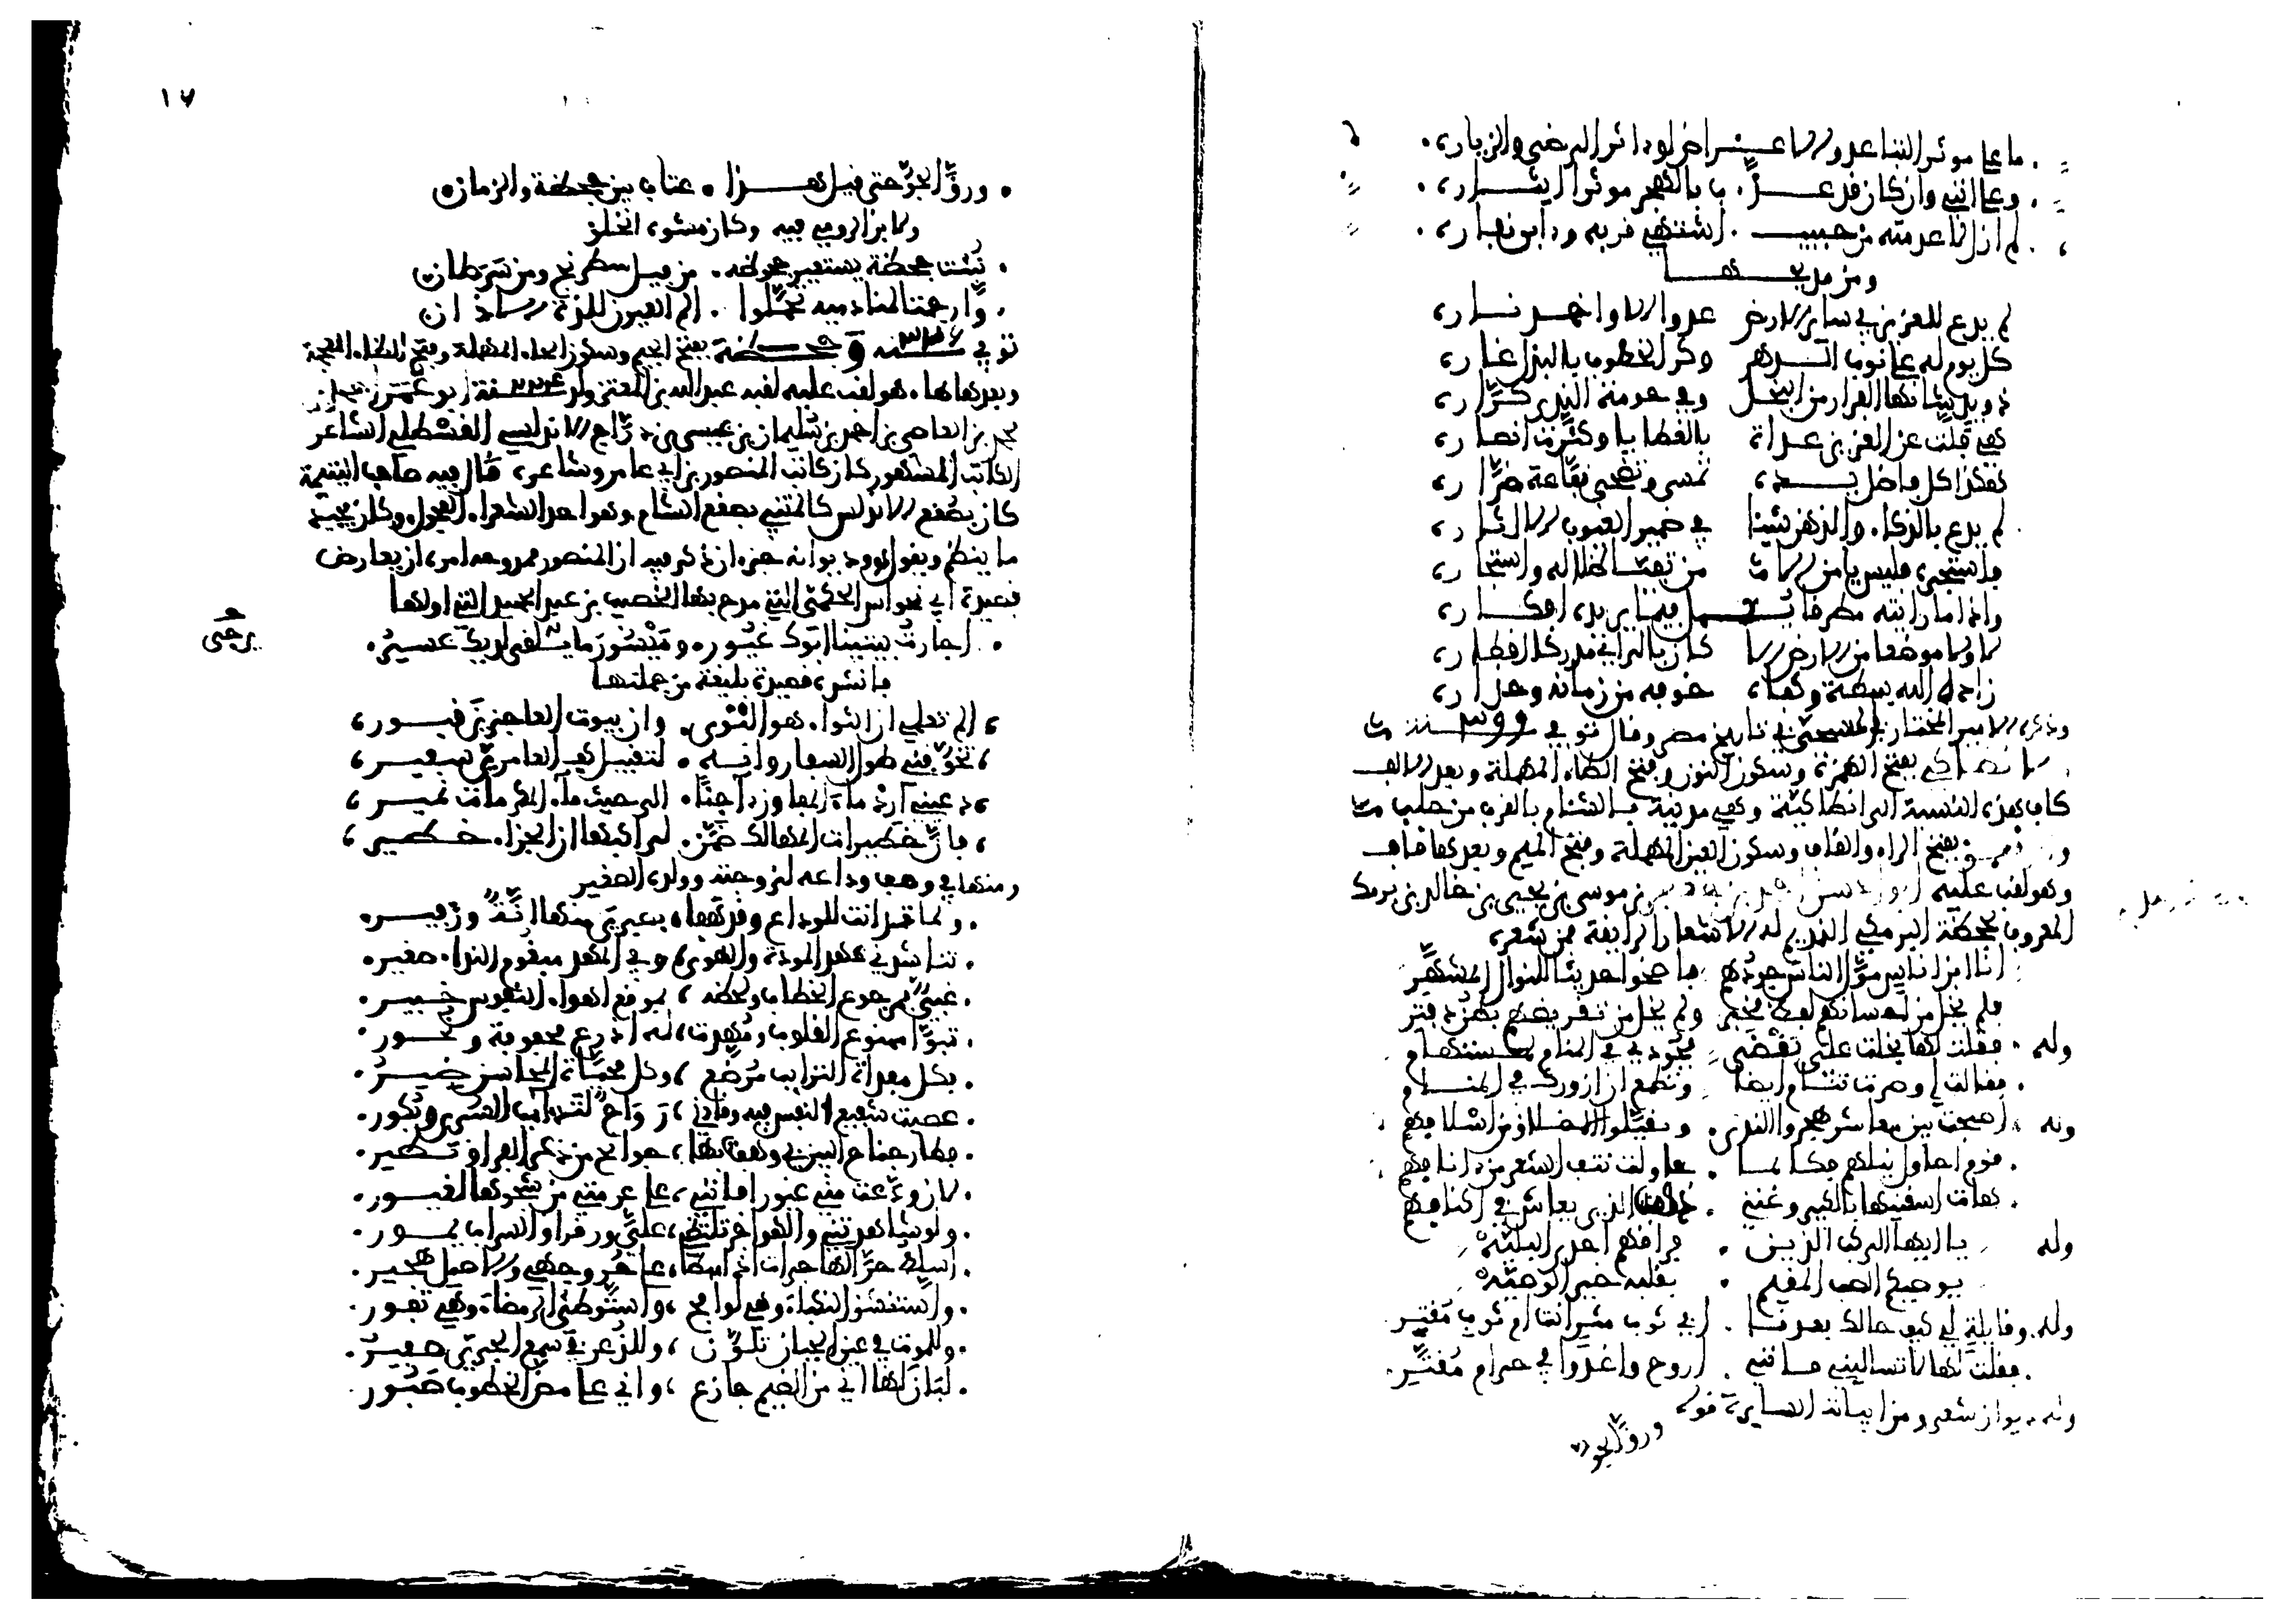 ما على موثر التباعد والاعـــراض لو اثر الرضى والزياره
وعلى انني وان كان قد عـــذب بالهجر موثر ايثـــاره
لم ازل لا عدمته من حبيـــب اشتهي قربه وابى نفاره
ومن مدحـــها
لم يدع للعزيز في ساير الارض عدوا الا واخمد نـــاره
كل يوم له على نوب الدهر وكر الخطوب بالبذل غاره
ذو يد شانها الفرار من البخل وفي حومة الندى كراره
هي فلت عن العزيز عداه بالعطايا وكثرت انصاره
هكذا كل فاضل يـــده تمسى وتضحى نفاعة ضراره
لم يدع بالذكاء والذهن شيئا في ضمير الغيوب الا اثاره
فاستجره فليس يامن الا من تفيا ظلاله واستجاره
واذا ما رايته مطرقا يعمـــل فيما يريده افكـــاره
لا ولا موضعا من الارض الا كان بالراي مدركا اقطاره
زاده الله بسطة وكفاه خوفه من زمانه وحذاره
وذكره الامير المختار المسبحي في تاريخ مصر وقال توفي في سنة ٣٩٩
الانطاكي بفتح الهمزة وسكون النون وفتح الطاء المهملة وبعد الالف
كاف هذه النسبة الى انطاكية وهي مدينة بالشام بالقرب من حلب
بفتح الراء والقاف وسكون العين المهملة وفتح الميم وبعدها قاف
وهو لقب عليه ابو الحسن بن موسى بن يحيى بن خالد بن برمك
المعروف بجحظة البرمكي النديم له الاشعار الرايقة فمن شعره
انا ابن اناس مول الناس جودهم فاضحوا حديثا للنوال المشهر
فلم يخل من احسانهم لفظ مخبر ولم يخل من تقريضهم بطن دفتر
وله فقلت لها بخلت علي يقضى فجودي في المنام لمستهام
فقالت لي وصرت تنام ايضا وتطمع ان ازورك في المنـــام
وله اصبحت بين معاشر هجروا الندى وتقبلوا الاخلاق من اسلافهم
قوم احاول نيلهم فكانما حاولت نتف الشعر من انافهم
هات اسقنيها بالكبير وغنني ذهب الذين يعاش في اكنافهم
وله يا ايها الركب الذين فراقهم احدى البليه
يوصيكم الصب المقيم بقلبه خير الوصيه
وله وقايلة لي كيف حالك بعدنـــا افي ثوب مثر انت ام ثوب مقتر
فقلت لها لا تساليني فانني اروح واغدو في حرام مقتر
وله ديوان شعر ومن ابياته السايرة قوله
ورق الجو
١٧
ورق الجو حتى قيل هـــذا عتاب بين جحظة والزمان
ولابن الرومي فيه وكان مشوه الخلق
نبئت جحظة يستعير جحوظه من فيل شطرنج ومن سرطان
وارحمتا لمنادميه تحملوا الم العيون للذة الاذان
توفي سنة ٣٢٦ وجحـــظة بفتح الجيم وسكون الحاء المهملة وفتح الظاء المعجمة
وبعدها ها هو لقب عليه لقبه عبد الله بن المعتز ولد سنة ٢٢٤ ابو عمر احمد
محمد بن العاصي بن احمد بن سليمان بن عيسى بن دراج الاندلسي القسطلي الشاعر
الكاتب المشهور كان كاتب المنصور بن ابي عامر وشاعره قال فيه صاحب اليتيمة
كان بصقع الاندلس كالمتنبي بصقع الشام وهو احد الشعراء الفحول وكان يجيد
ما ينظم ويقول وديوانه جزءان ذكر فيه ان المنصور ممدوحه امره ان يعارض
قصيدة ابي نواس الحكمي التي مدح بها الخصيب بن عبد الحميد التي اولها
اجارة بيتينا ابوك غيور وميسور ما يرجى لديك عسير
يرجى
فانشده قصيدة بليغة من جملتها
الم تعلمي ان الثواء هو التوى وان بيوت العاجزين قبـــور
تخوفني طول السفار وانـــه لتقبيل كف العامري سفيـــر
دعيني ارد ماء المفاوز اجنا الى حيث ماء المكرمات نميـــر
فان خطيرات المهالك ضمن لراكبها ان الجزاء خـــطير
ومنها في وصف وداعه لزوجته وولده الصغير
ولما تدانت للوداع وقد هفا بصبري منها انة وزفيـــر
تناشدني عهد المودة والهوى وفي المهد مبغوم النداء صغير
غبي بمرجوع الخطاب ولحظه بموقع اهواء النفوس خبيـــر
تبوا ممنوع القلوب ومهدت له اذرع محفوفة ونحـــور
بكل مفداة الترايب مرضع وكل محياة المحاسن ضيـــر
عصيت شفيع النفس فيه وقادني رواح لتداب السرى وبكور
وطار جناح البين بي وهفت بها جوانح من ذعر الفراق تـــطير
لان ودعت مني غيورا فانني على عزمتي من شجوها لغيـــور
ولو شاهدتني والهواجر تلتظي علي ورقراق السراب يمـــور
اسلط حر الهاجرات اذا سطا على حر وجهي والاصيل هجير
واستنشق النكباء وهي لوافح واستوطئ الرمضاء وهي تفور
وللموت في عين الجبان تلون وللذعر في سمع الجري صفير
لبان لها اني من الضيم جازع واني على مض الخطوب صبور